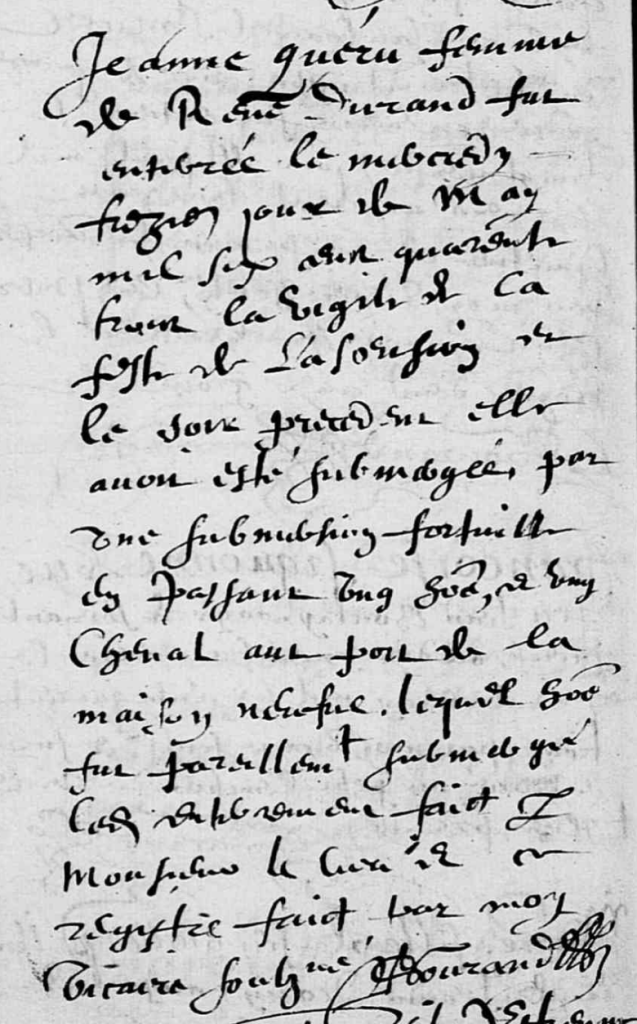 Jeanne quéru femme
de René Durand fut
enterrée le mercredy
trezien jour de May
mil six cent quarente
trois la vigile de La
feste de L'asension et
le jour precedent elle
avoit esté submergée, par
une submersion fortuitte
en passant ung hoe, et ung
Cheval aut port de la
maison neufve. lequel hoe
fut pareillemt submergé
Led enterrement faict p
Monsieur le Curé et ce
registre faict par moy
vicaire soubzné Bourand